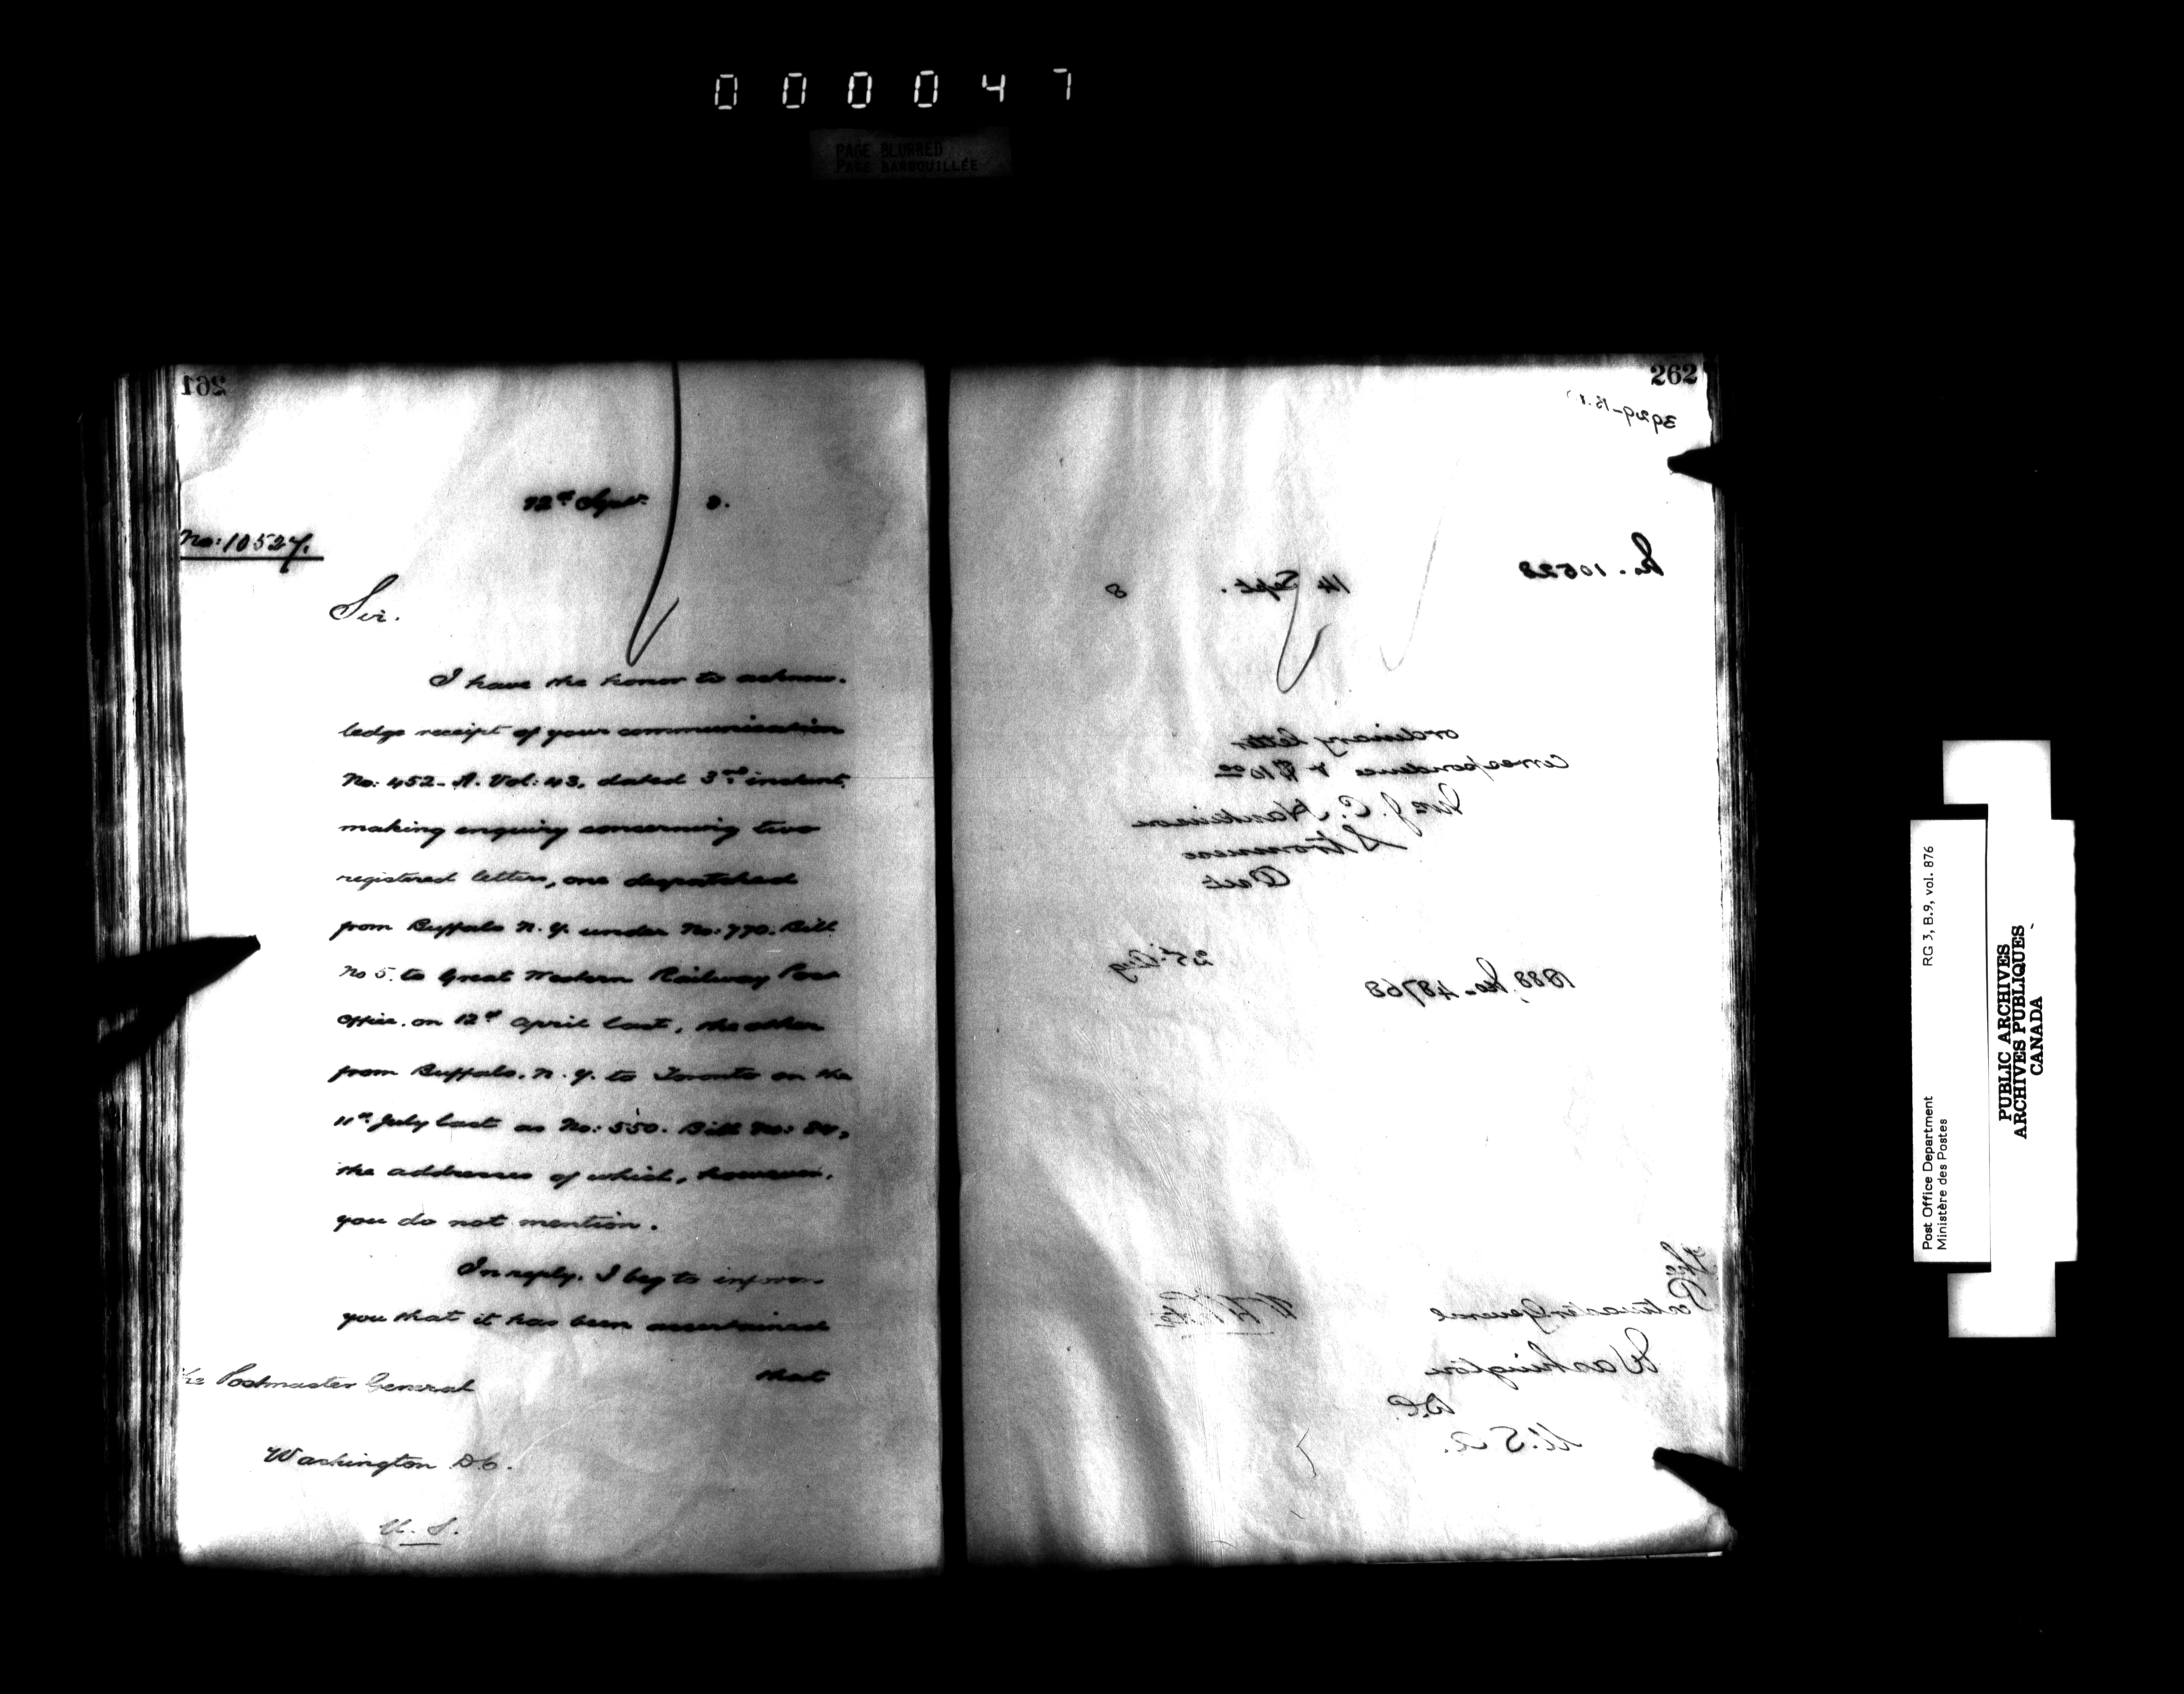 000047
PAGE BLURRED
PAGE BARBOUILLÉE
261
12th Sept. 8.
No: 10527.
Sir.
I have the honor to acknow-
ledge receipt of your communication
No: 452-A. Vol: 43, dated 3rd instant,
making enquiry concerning two
registered letters, one despatched
from Buffalo N.Y. under No: 770. Bill
No 5. to Great Western Railway Post
Office. on 12th April last, the other
from Buffalo. N.Y. to Toronto on the
11th July last as No: 550. Bill No: 84,
the addresses of which, however,
you do not mention.
In reply, I beg to inform
you that it has been ascertained
that
The Postmaster General
Washington D.C.
U.S.
262
No. 10528
14 Sept. 8
ordinary letter
correspondence & $10.00
Mr J. C.
Ont
25th Aug
1888, No. 48768
The
Postmaster General
Washington
D.C.
U.S.A.
Post Office Department
Ministère des Postes
RG 3, B.9, vol. 876
PUBLIC ARCHIVES
ARCHIVES PUBLIQUES
CANADA